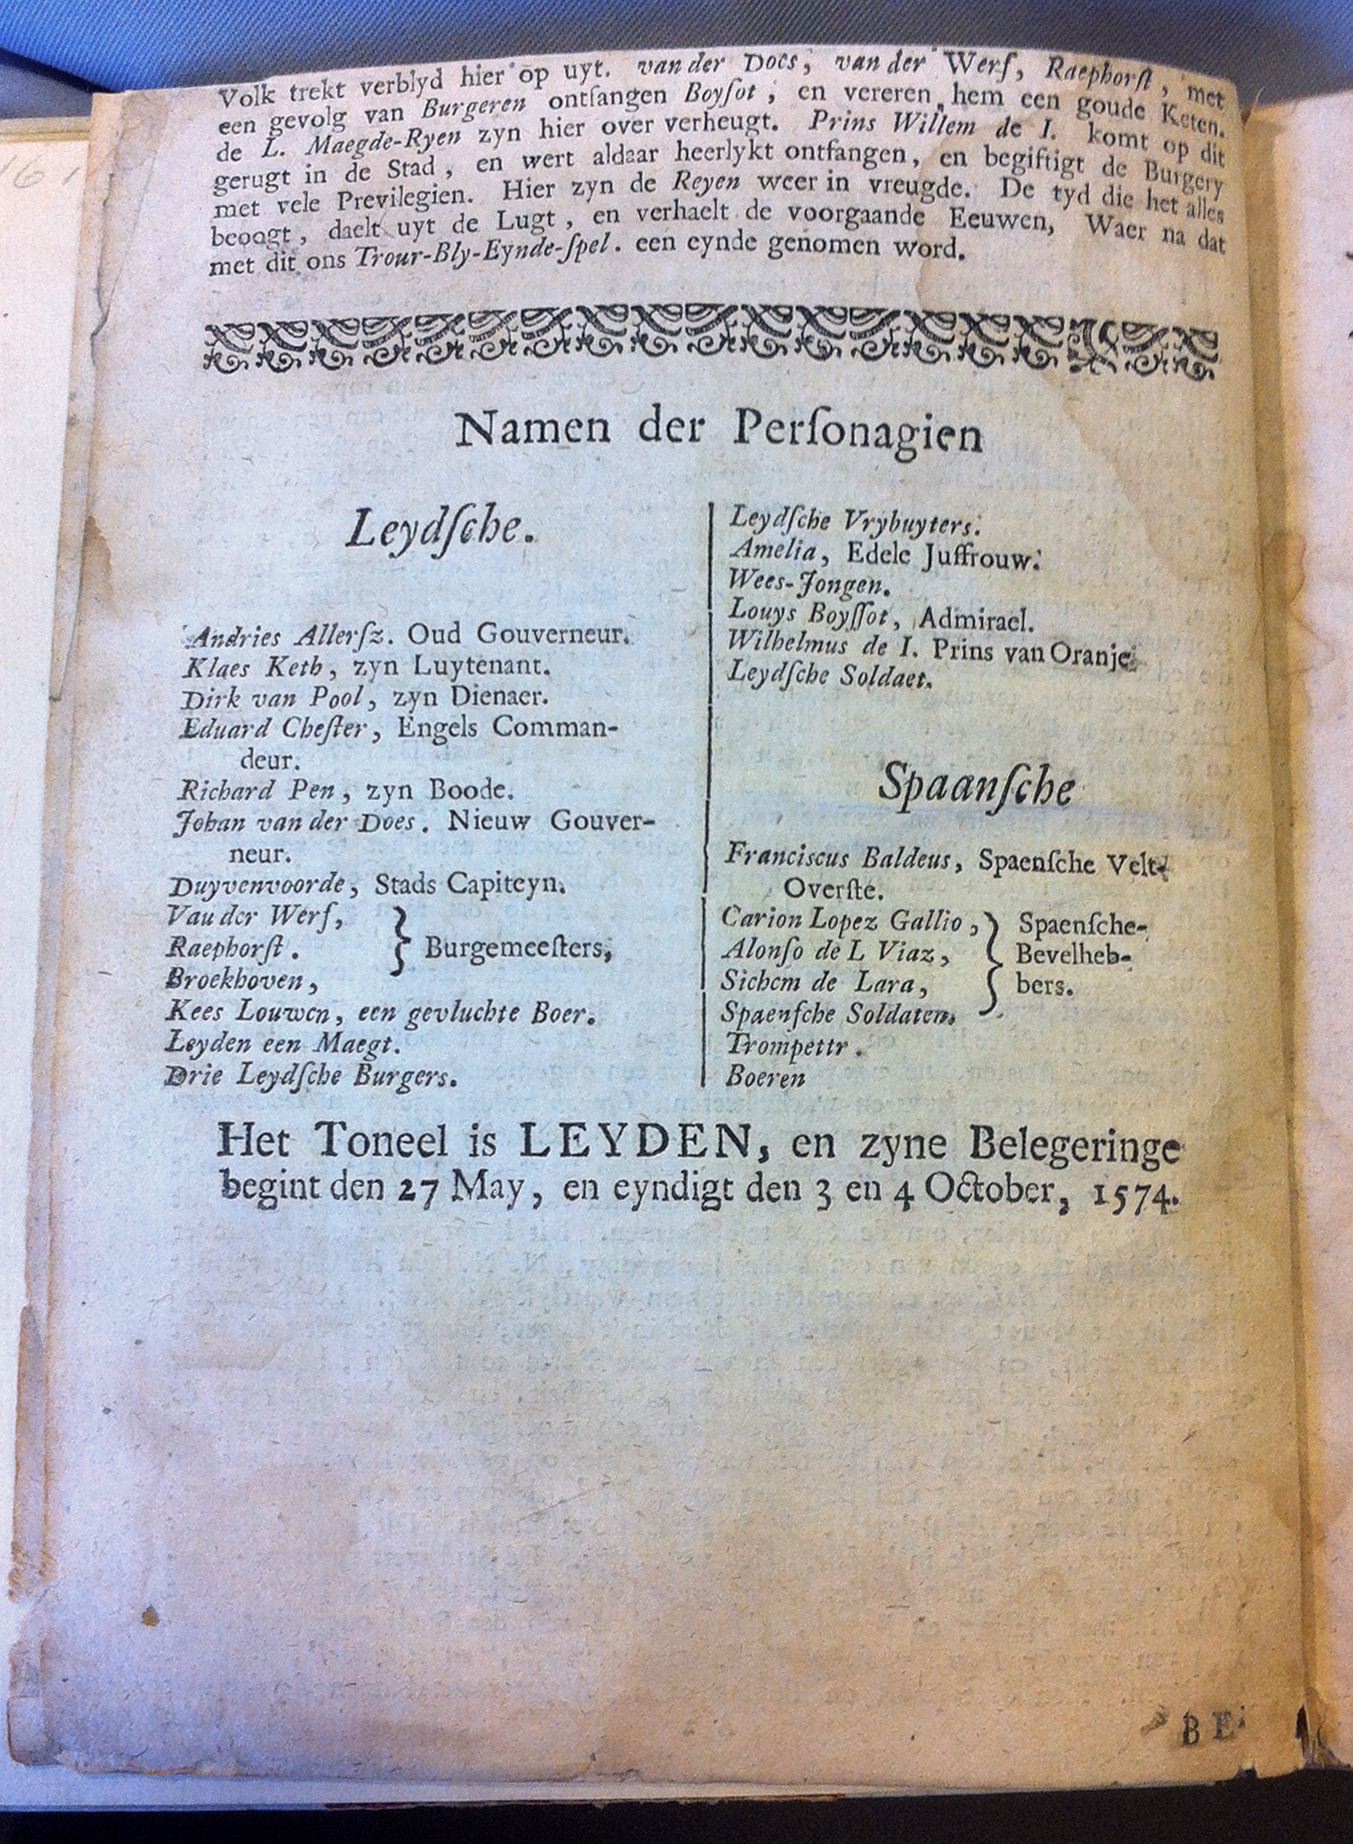 Volk trekt verblyd hier op uyt. van der Does, van der Werf, Raephorſt, met
een gevolg van Burgeren ontfangen Boyſot, en vereren hem een goude Keten.
de L. Maegde-Ryen zyn hier over verheugt. Prins Willem de I. komt op dit
gerugt in de Stad, en wert aldaar heerlykt ontfangen, en begiftigt de Burgery
met vele Previlegien. Hier zyn de Reyen weer in vreugde. De tyd die het alles
beoogt, daelt uyt de Lugt, en verhaelt de voorgaande Eeuwen, Waer na dat
met dit ons Trour-Bly-Eynde-ſpel. een eynde genomen word.
Namen der Perſonagien
Leydſche.
Andries Allerſz. Oud Gouverneur.
Klaes Keth, zyn Luytenant.
Dirk van Pool, zyn Dienaer.
Eduard Cheſter, Engels Comman-
deur.
Richard Pen, zyn Boode.
Johan van der Does. Nieuw Gouver-
neur.
Duyvenvoorde, Stads Capiteyn.
Van der Werf,
Raephorſt. } Burgemeeſters,
Broekhoven,
Kees Louwen, een gevluchte Boer.
Leyden een Maegt.
Drie Leydſche Burgers.
Leydſche Vrybuyters.
Amelia, Edele Juffrouw.
Wees-Jongen.
Louys Boyſſot, Admirael.
Wilhelmus de I. Prins van Oranje
Leydſche Soldaet.
Spaanſche
Franciscus Baldeus, Spaenſche Velt-
Overſte.
Carion Lopez Gallio, } Spaenſche-
Alonſo de L Viaz, Bevelheb-
Sichem de Lara, bers.
Spaenſche Soldaten.
Trompettr.
Boeren
Het Toneel is LEYDEN, en zyne Belegeringe
begint den 27 May, en eyndigt den 3 en 4 October, 1574.
BE